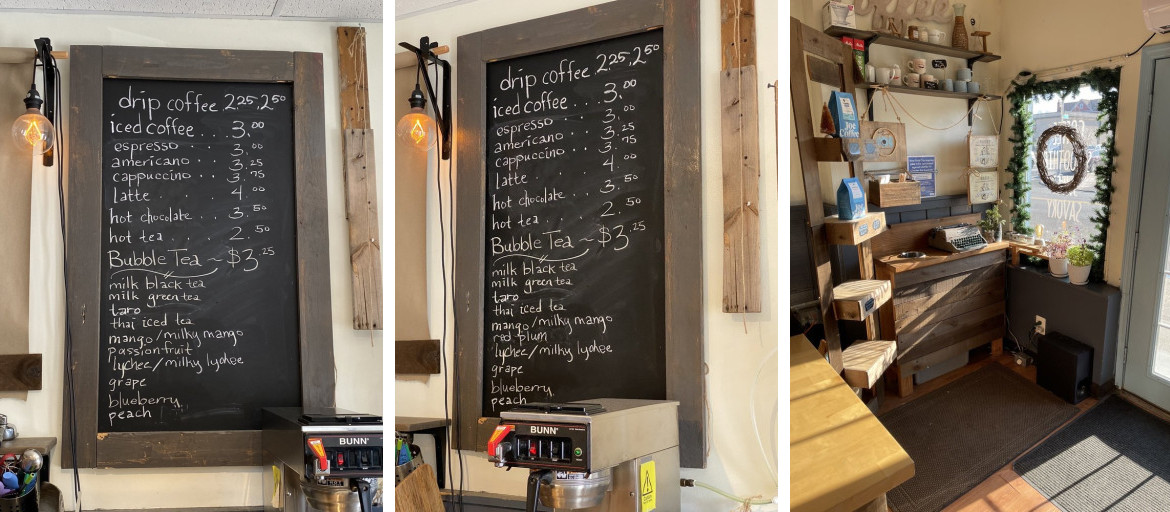 drip coffee 2.25, 2.50
iced coffee . . . 3.00
espresso . . 3.00
americano . . 3.25
cappuccino . . 3.75
Latte . . 4.00
hot chocolate . . . 3.50
hot tea . . . 2.50
Bubble Tea ~ $3.25
milk black tea
milk green tea
taro
thai iced tea
mango/milky mango
passionfruit
lychee/milky lychee
grape
blueberry
peach
BUNN
drip coffee 2.25, 2.50
iced coffee . . . 3.00
espresso . . 3.00
americano . . 3.25
cappuccino . . 3.75
Latte . . 4.00
hot chocolate . . 3.50
hot tea . . . 2.50
Bubble Tea ~ $3.25
milk black tea
milk green tea
taro
thai iced tea
mango/milky mango
red plum
lychee/milky lychee
grape
blueberry
peach
BUNN
SAVORY